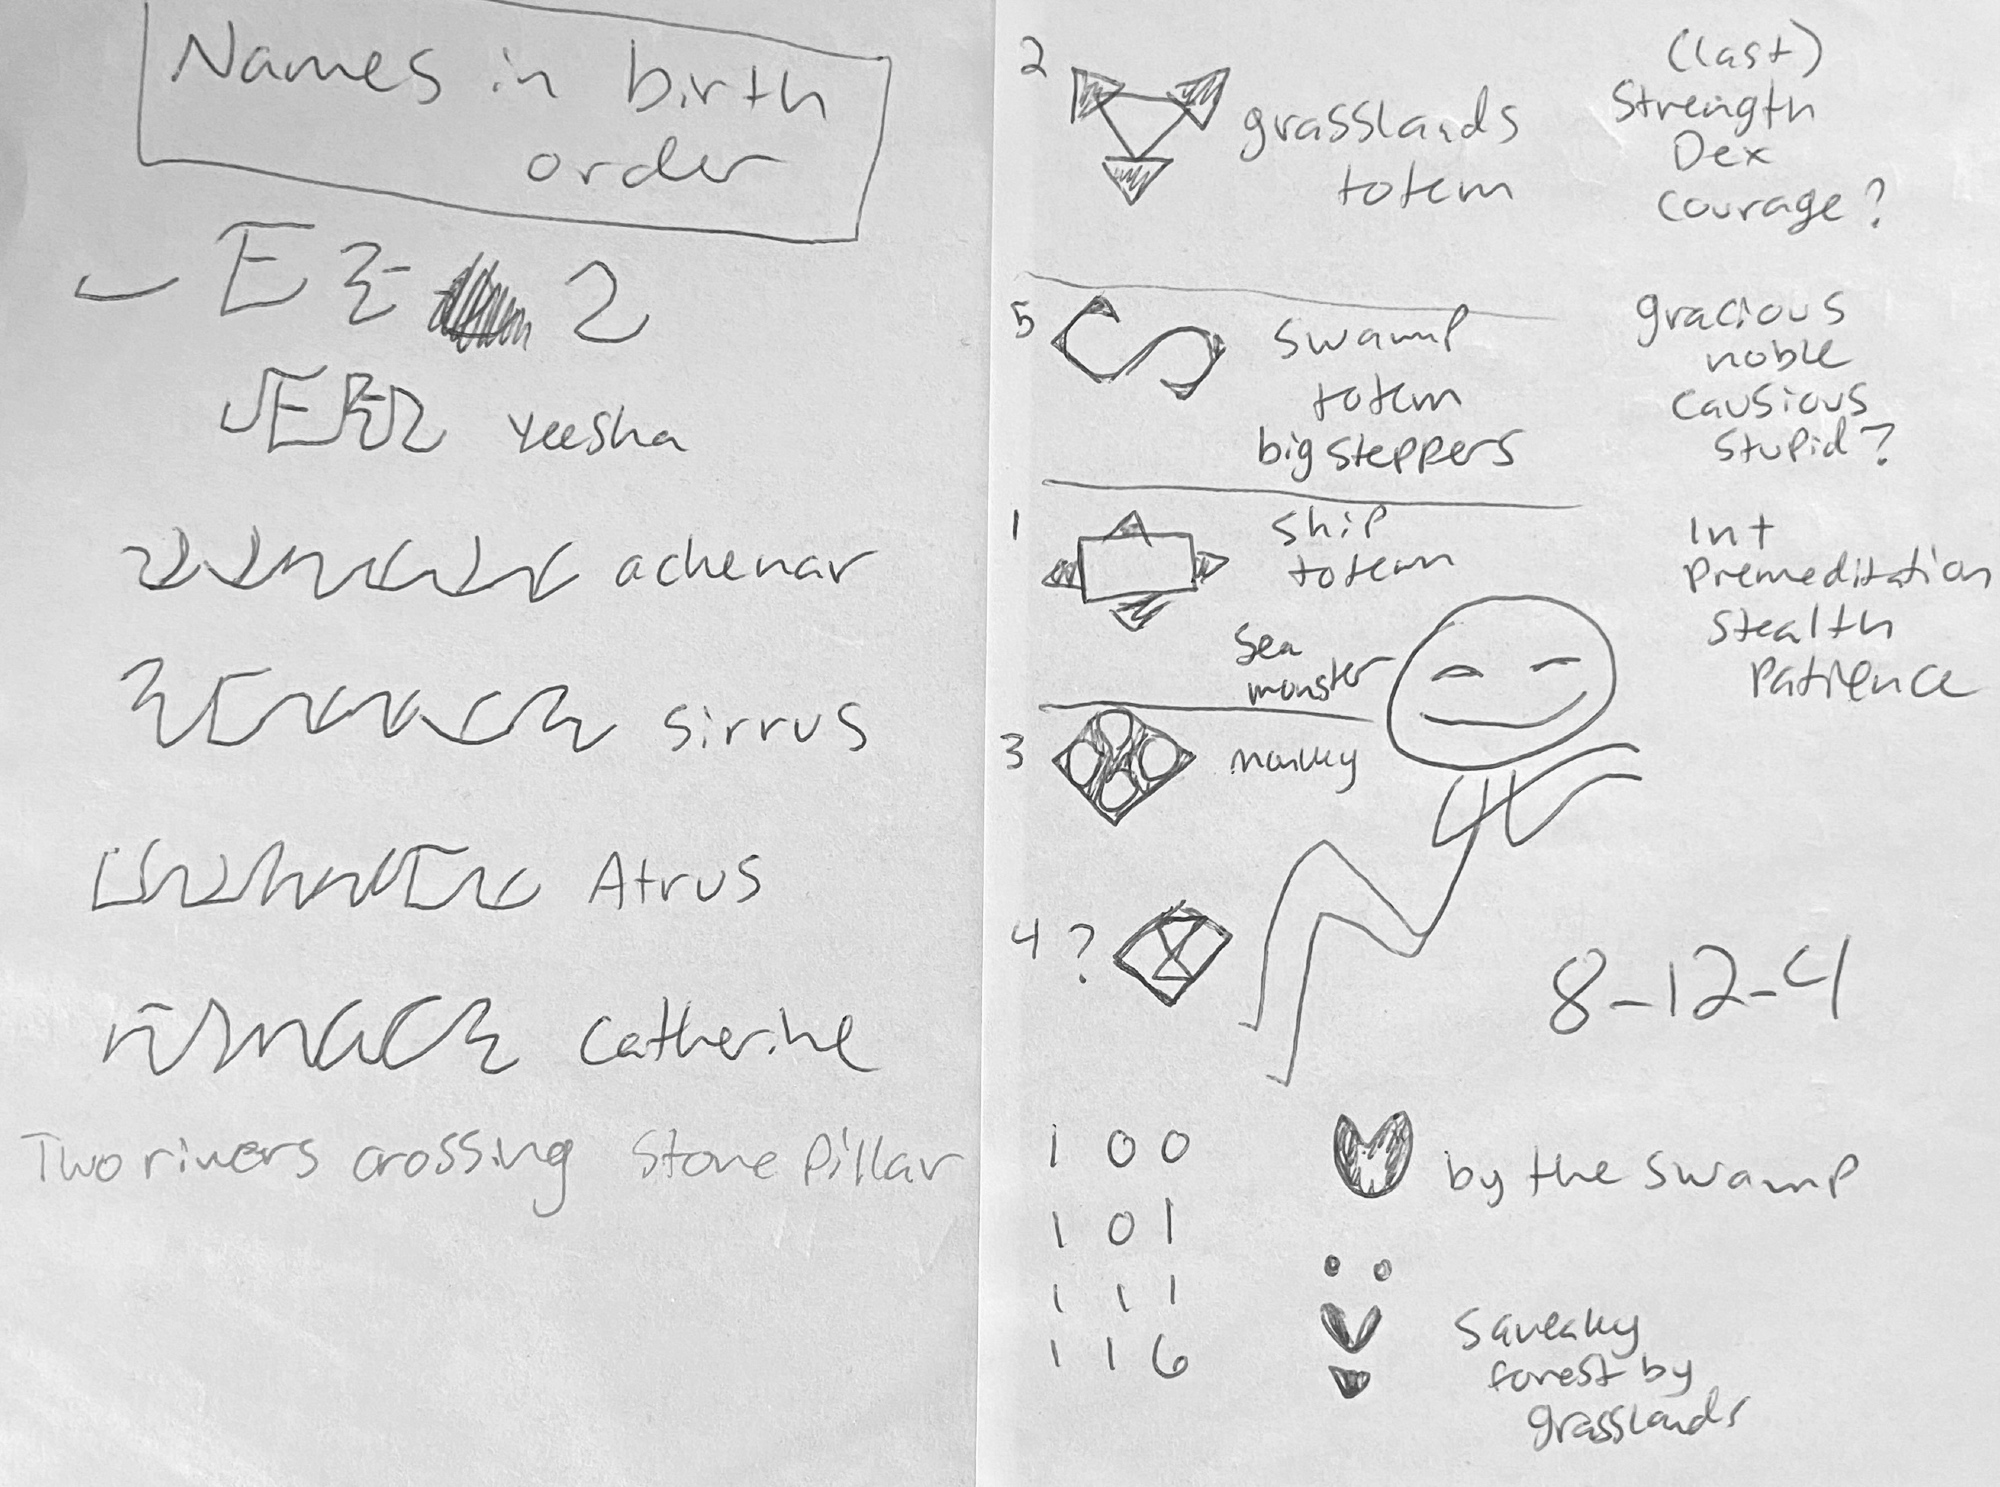 Names in birth
order
yeesha
achenar
sirrus
Atrus
Catherine
Two rivers crossing Stone Pillar
2
grasslands
totem
(last)
Strength
Dex
courage?
5
swamp
totem
big steppers
gracious
noble
causious
stupid?
1
ship
totem
sea
monster
Int
premeditation
stealth
patience
3
4?
8-12-4
1 0 0
1 0 1
1 1 1
by the swamp
squeaky
forest by
grasslands